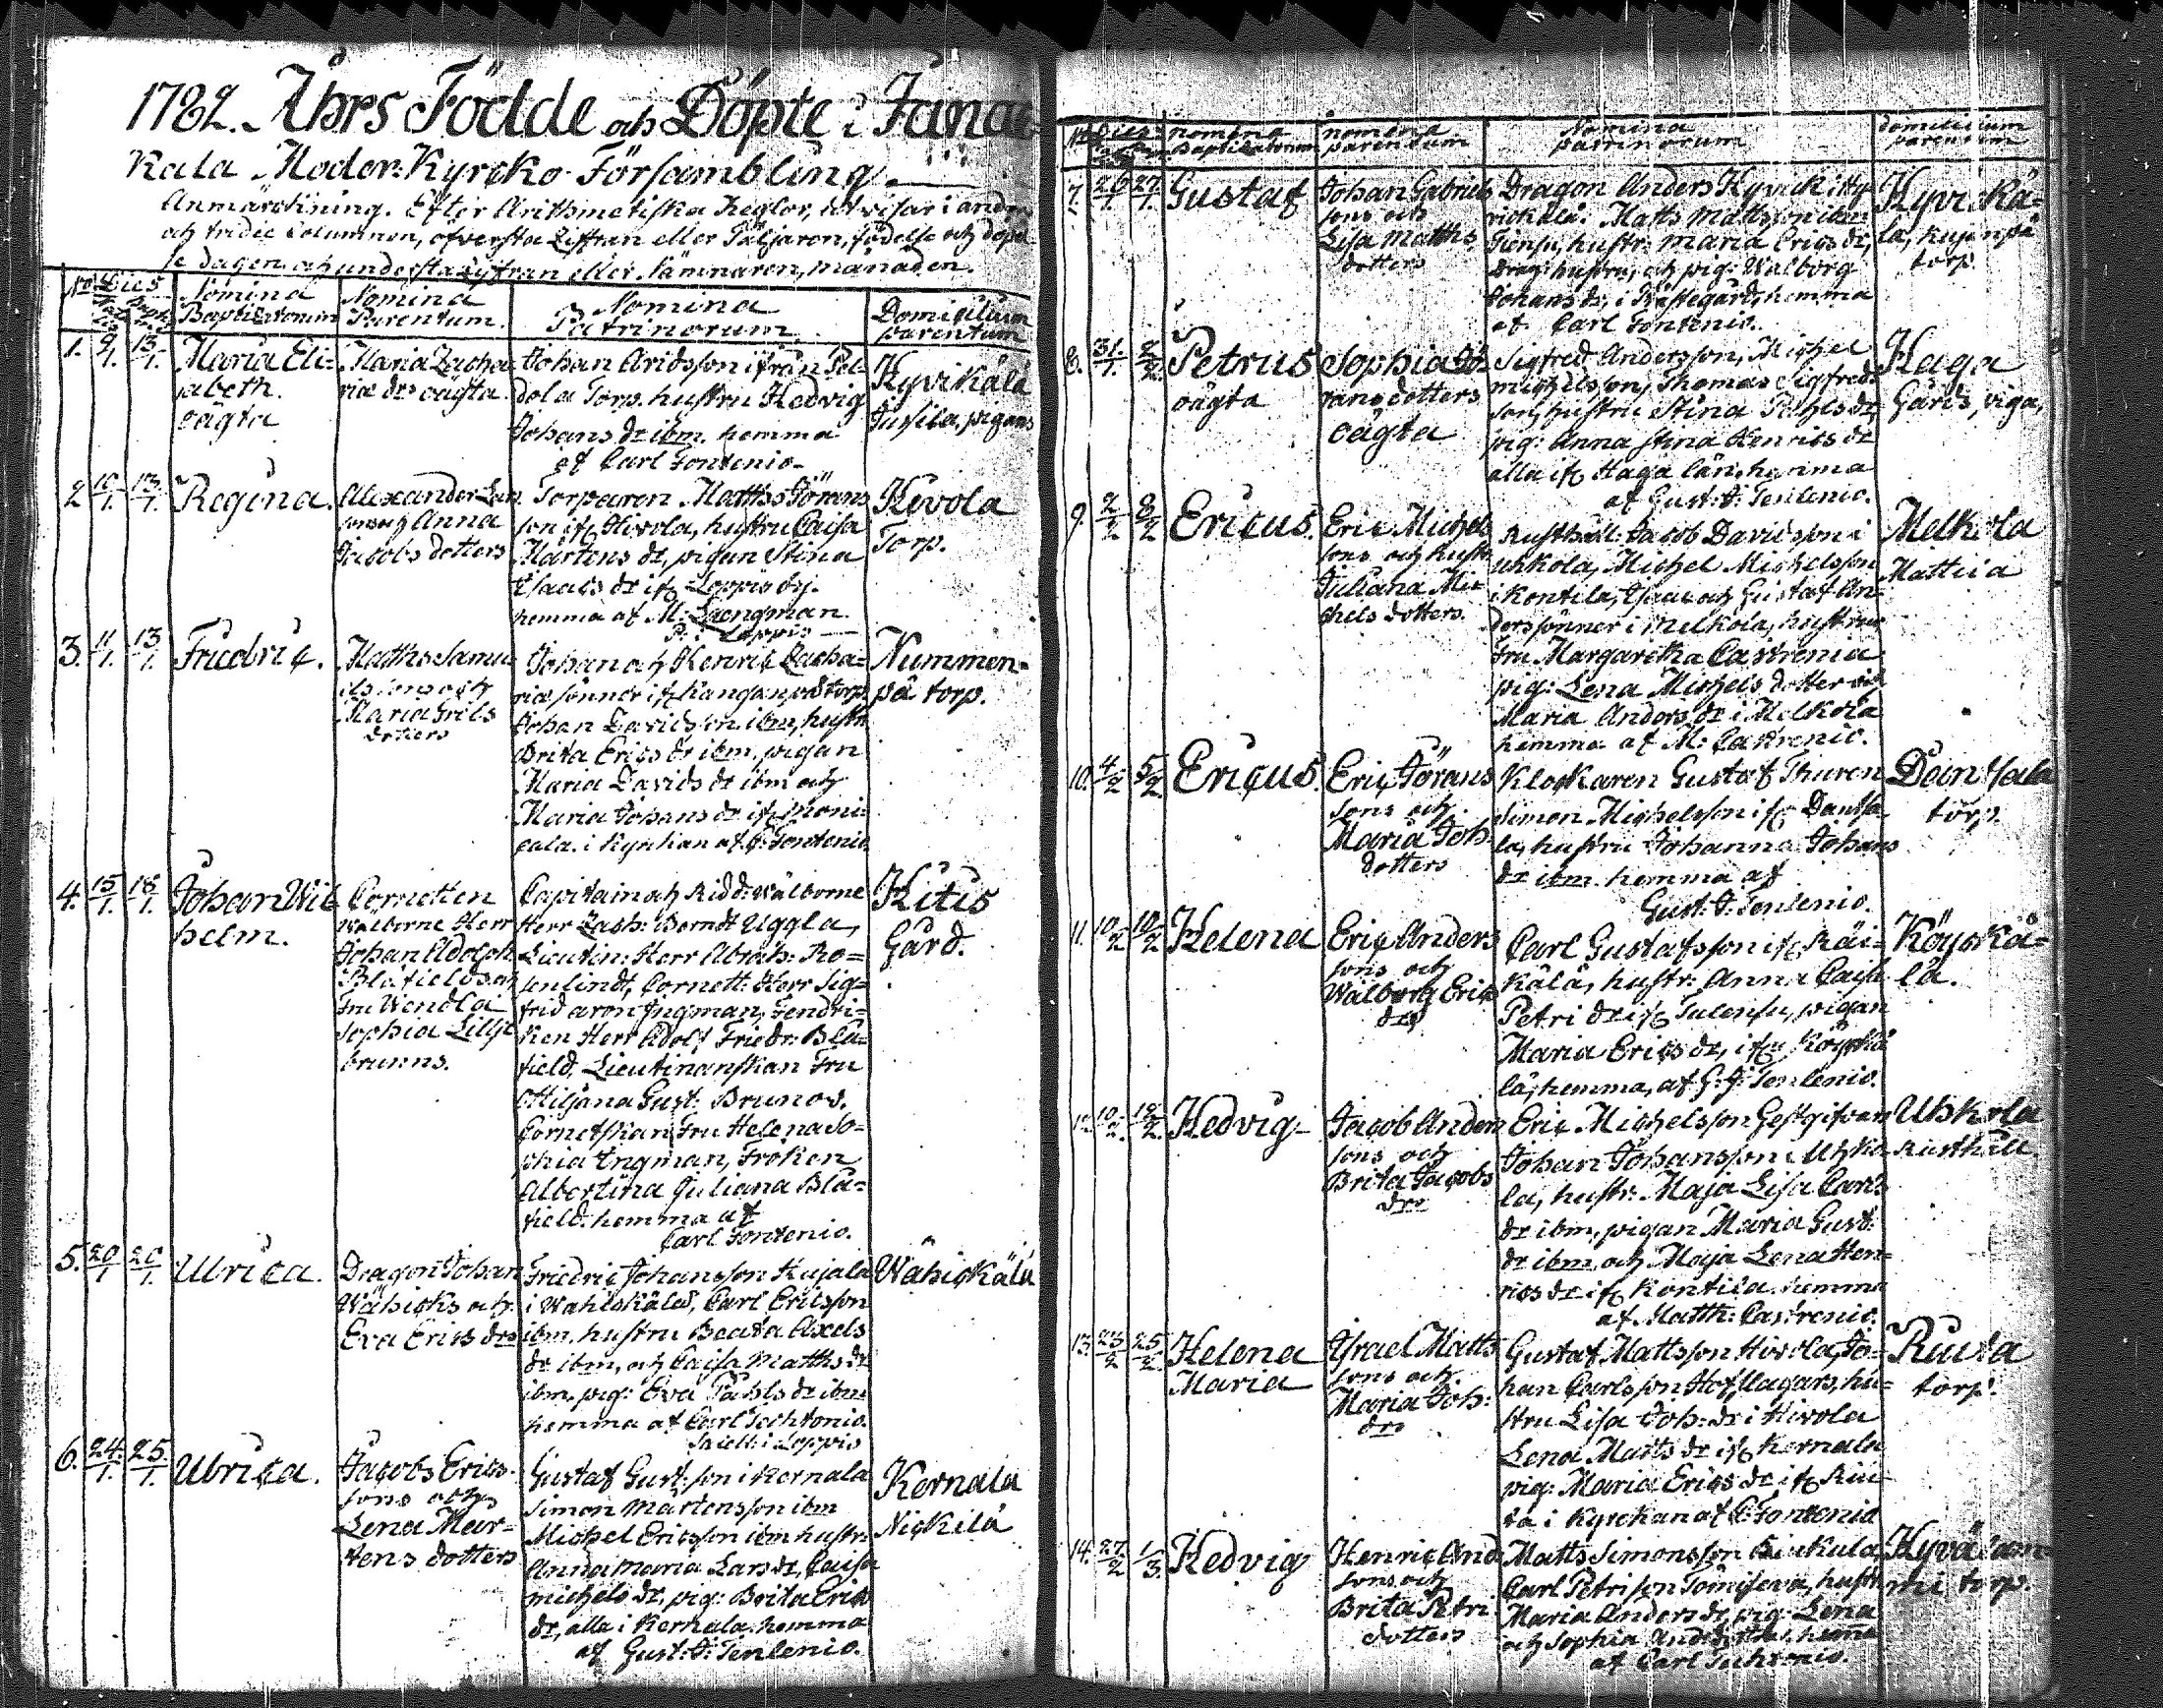 1782. Åhrs Födde och Döpte i Jana
Kala Moder-Kyrcko-Försambling.
Anmärckning. Efter Arithmetiska Reglor, det visar i andra
och tridie Columnen, öfversta Ziffran eller Täljaren, födelse och döpel-
se dagen, och understa zyfran eller Nämnaren, månaden.
No Dies Nomina Baptizatorum Nomina Parentum. Nomina Patrinorum Domicilium parentum
1. 9/1. 13/1.
Maria Eli-
sabeth.
oägta
Maria Zacha-
riæ dr oägta
Johan Aridsson ifrån Pel-
dola Torp. hustru Hedvig
Johans dr ibm. hemma
af Carl Fontenio.
Hyvikälä
Jussila, pigans
2 10/1. 13/1.
Regina.
Alexander Lars
sons och Anna
Jacobs dotters
Torparen Matths Jörans
son if Hivola, hustru Caisa
Mårtens dr, pigan Stina
Isaacs dr if Loppis
hemma af M. Longman
P. i Loppis
Hivola
Torp.
3. 11/1. 13/1.
Friedric.
Matths Samu-
els sons och
Maria Frils
dotters
Johan och Henric Zacha-
riæ sönner if Kangan torp
Johan Davidsson ibm, hustr
Brita Erics dr ibm, pigan
Maria Davids dr ibm och
Maria Johans dr if Moni-
cala. i Kyrkian af C. Fontenio
Nummen-
pä torp.
4. 15/1. 18/1.
Johan Wil
helm.
Cornetten
Wälborne Herr
Johan Adolph
Blåfields och
Fru Wendla
Sophia Lillje
brunns.
Capitain och Ridd: Wälborne
Herr Zach: Berndt Uggla,
Lieutin: Herr Abrah: Ro-
senlindt, Cornett: Herr Sig-
frid Aron Jngman, Fendri-
ken Herr Adolf Friedr: Blå-
field, Lieutinanskan Fru
Ottiljana Gust: Brunos.
Cornetskan Fru Helena So-
phia Engman, Fröken
Albertina Juliana Blå-
field. hemma af
Carl Fontenio.
Hitis
Gård.
5. 20/1 20/1.
Ulrica.
Dragon Johan
Wähicks och
Eva Erics drs
Friedric Johansson Kujala
i Wähickälä, Carl Ericsson
ibm. hustru Beata Axels
dr ibm, och Caisa Matths dr
ibm. pig: Eva Påhls dr ibm
hemma af Carl Techtonio.
i Loppis
Wähickälä
6. 24/1. 25./1.
Ulrica.
Jacobs Erics-
sons och
Lena Mår-
tens dotters
Gustaf Gust: son i Kernala
Simon Mårtensson ibm
Michel Ericsson ibm hustr:
Anna Maria Lars dr, Caisa
Michels dr, pig: Brita Erics
dr, alla i Kernala, hemma
af Gust: J: Tenlenio.
Kernala
Nickilä
No Dies nomina Baptizatorum nomina parentum Nomina patrinorum domicilium parentum
7. 26/1 27/1.
Gustaf
Johan Gabriels
sons och
Lisa Matths
dotters
Dragon Anders Hyvick i Hy-
vickälä. Matts Mattsson ibm
hustr: Maria Erics dr,
drag: hustru, och pig: Walborg
Johans dr, i Prästegård, hemma
af Carl Fontenio.
Hyvickä-
la, Kujanpä
torp.
8. 31/1 2/2
Petrus
oägta
Sophia Jö-
rans dotters
oägta
Sigfred Andersson, Michel
Michelsson, Thomas Sigfreds
son, hustru Stina Påhls dr,
pig: Anna Stina Henrics dr
alla if Haga län, hemma
af Gust: J: Tenlenio.
Haga
Gårds, piga,
9. 2/2 8/2
Ericus.
Eric Michels
sons och hustr
Juliana Mic
chels dotters.
Rusthåll: Jacob Davidsson i
uhkola, Michel Michelsson
i Kontila, Isaac och Gustaf An-
derssönner i Melkola, hustrun
Fru Margaretha Castrenia
pig: Lena Michels dotter och
Maria Anders dr i Melkola
hemma af M: Castrenio.
Melkola
Mattila
10. 4/2 5/2
Ericus.
Eric Jörans
sons och
Maria Joh.
dotters
Klockaren Gustaf Thuren
Simon Michelsson if Dansa-
la, hustru Johanna Johans
dr ibm. hemma af
Gust: J: Tenlenio.
Dansala
torp.
11. 10/2 10/2
Helena
Eric Anders
sons och
Walborg Erics
drs
Carl Gustafsson if Räi-
kälä, hustr: Anna Caisa
Petri dr if Tulensu, pigan
Maria Erics dr, if Köyskä
lä, hemma, af G: J: Tenlenio.
Köyskä-
lä.
12. 10/2. 12/2.
Hedvig-
Jacob Anders
sons och
Brita Jacobs
drs
Eric Michelsson Gestgifvare
Johan Johansson i Uhko
la, hustr: Maja Lisa Carls
dr ibm, pigan Maria Gust:
dr ibm, och Maja Lena Hen-
rics dr if Kontila. hemma
af Matth: Castrenio.
Uhkola
Rusthåll.
13. 23/2 25/2.
Helena
Maria
Israel Matts
sons och
Maria Joh:
drs
Gustaf Mattsson Hivola, Jo-
han Carlsson Hofslagars, hu-
stru Lisa Joh: dr i Hivola
Lena Matts dr if Kernala
pig: Maria Erics dr if Riu-
ta i Kyrckan af C: Fontenio
Riuta
torp.
14. 27/2 1/3.
Hedvig
Henric And
sons och
Brita Petri
dotters
Matts Simonsson
Carl Petri son hustr
Maria Anders dr, pig: Lena
och Sophia hemma
af Carl Techtonio.
torp.